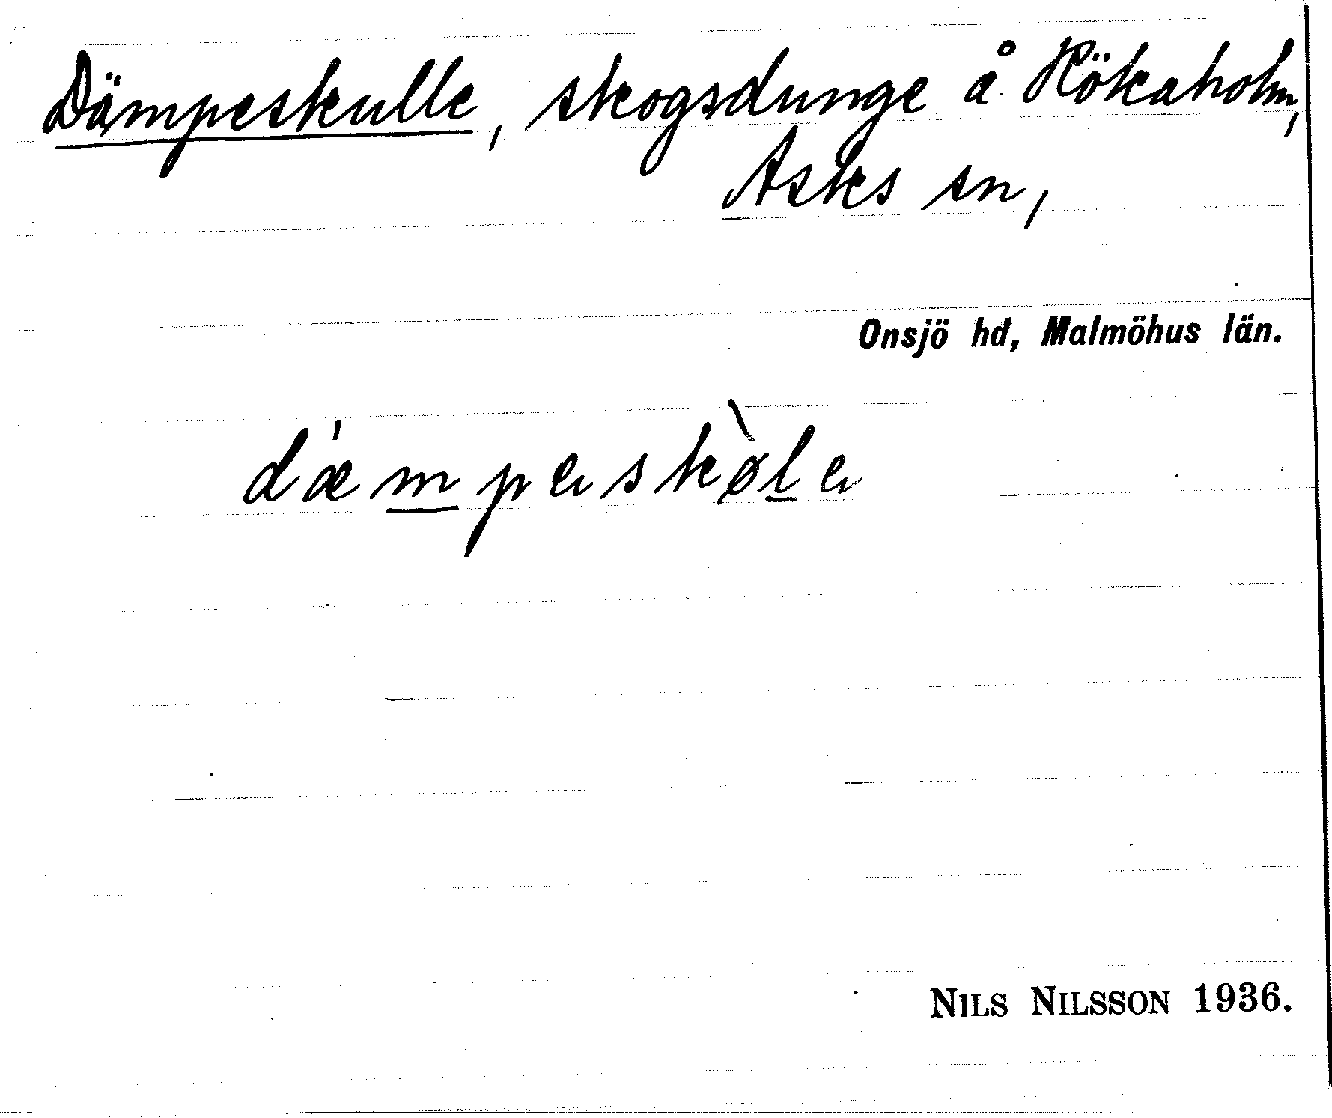 Dämpeskulle, skogsdunge å Rökaholm,
Asks sn,
Onsjö hd, Malmöhus län.
dæmpeskøle
NILS NILSSON 1936.